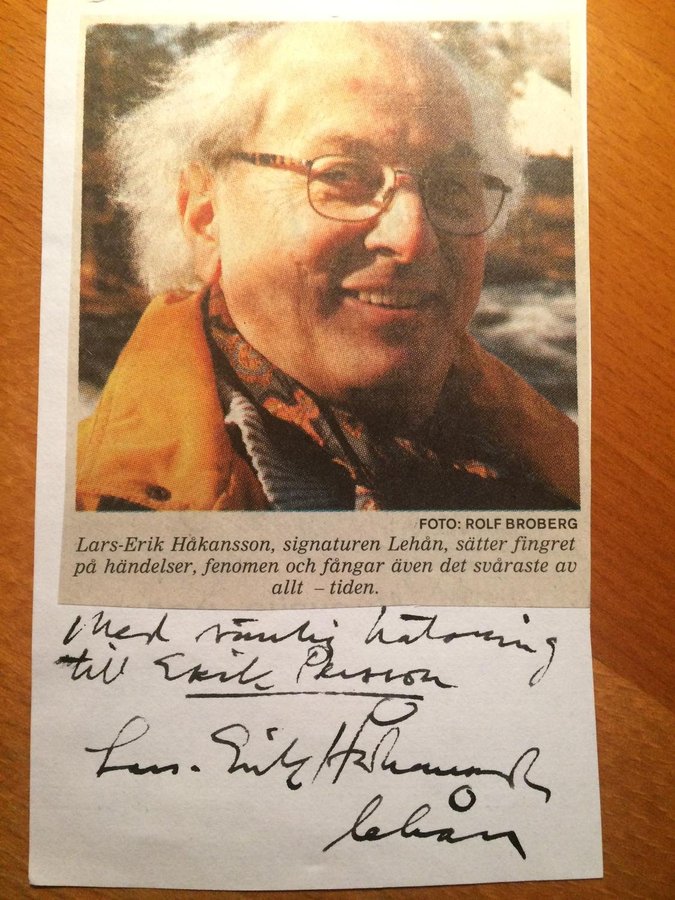 FOTO: ROLF BROBERG
Lars-Erik Håkansson, signaturen Lehån, sätter fingret
på händelser, fenomen och fångar även det svåraste av
allt – tiden.
Med vänlig hälsning
till Erik Persson
Lars-Erik Håkansson
lehån